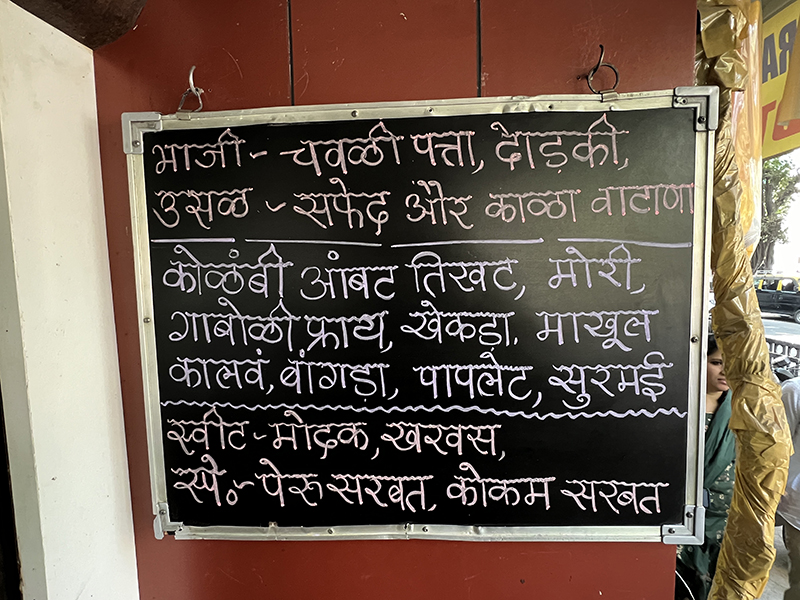 भाजी - चवळी पत्ता, दोडकी,
उसळ - सफेद और काळा वाटाणा
कोळंबी आंबट तिखट, मोरी,
गाबोळी फ्राय, खेकडा, माखूल
कालवं, बांगडा, पापलेट, सुरमई
स्वीट - मोदक, खरवस,
स्पे०- पेरू सरबत, कोकम सरबत
RA